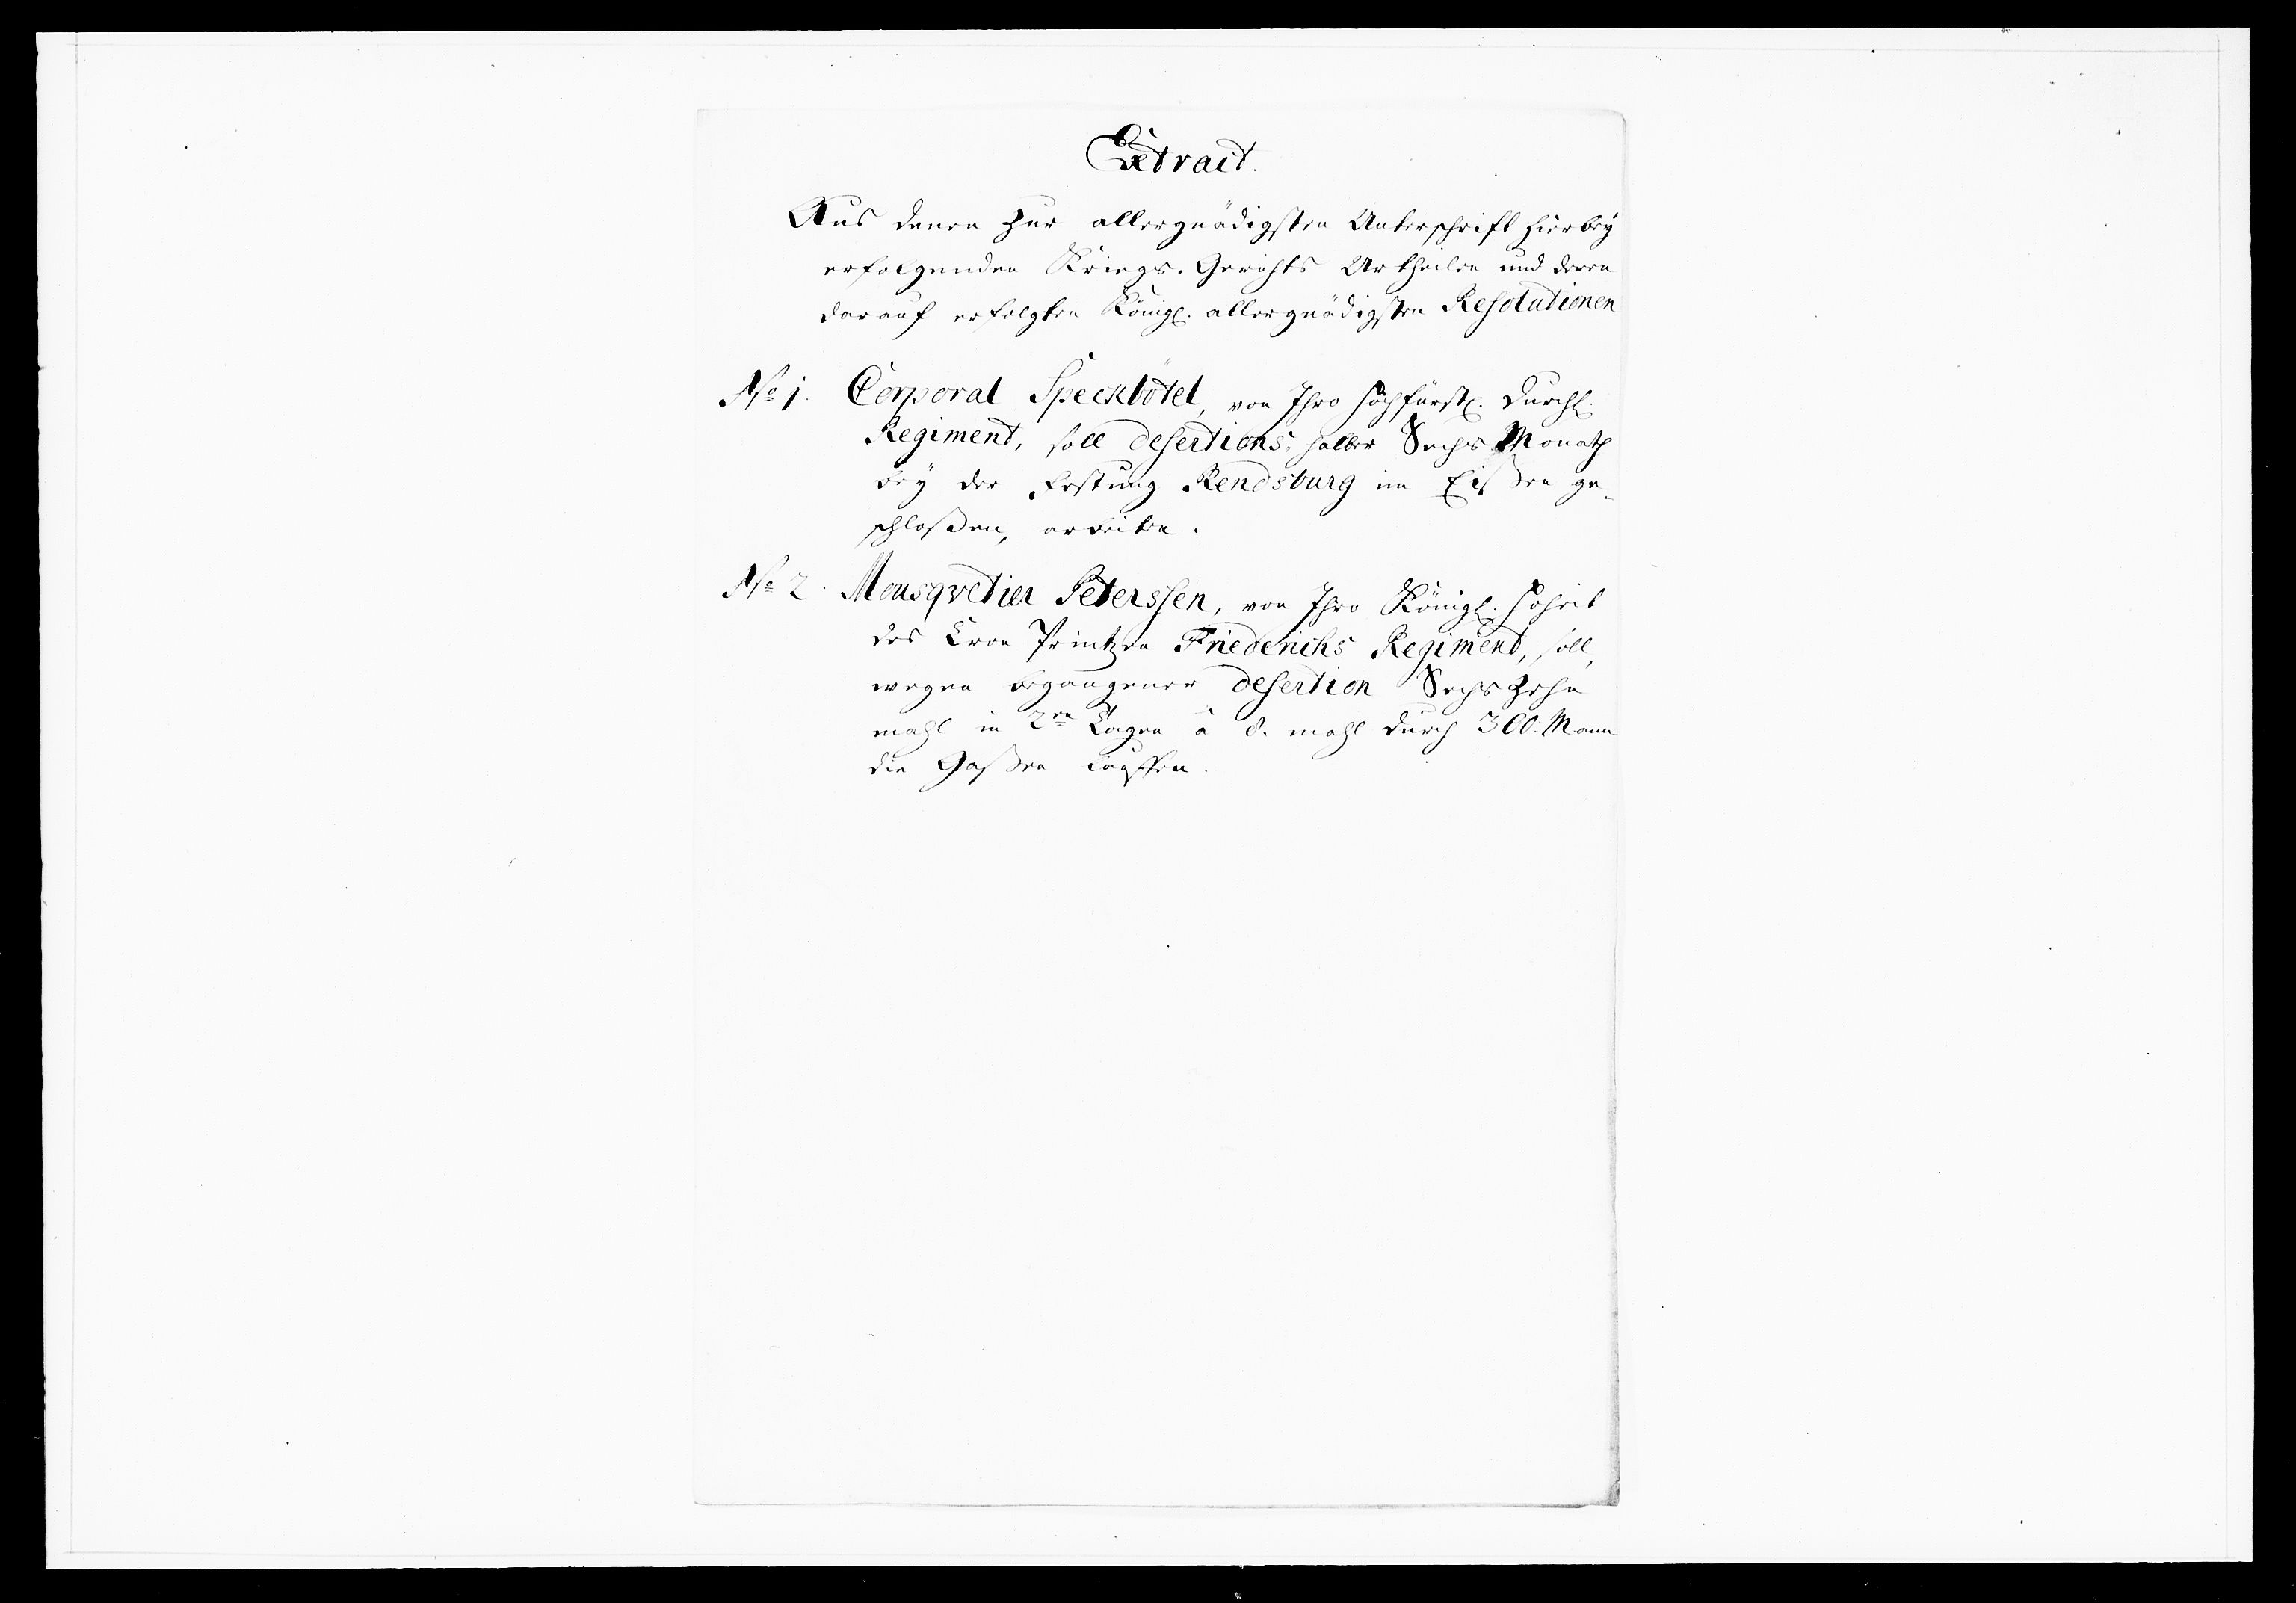 Extrait.
Aus denen zur allergnädigsten Unterschrift hierbey
erfolgenden Kriegs-Gerichts Urtheilen und deren
darauf erfolgten Königl. allergnädigsten Resolutionen
No 1. Corporal Speckbötel, von Ihro Hochfürstl. Durchl.
Regiment, soll desertions-halber Sechs Monath
bey der Festung Rendsburg im Eißen ge-
schloßen, arbeiten.
No 2. Mousqvetier Peterssen, von Ihro Königl. Hoheit
des Cron Printzen Friederichs Regiment, soll,
wegen begangener desertion Sechszehn
mahl in 2en Tagen à 8. mahl durch 300. Mann
die Gaßen lauffen.